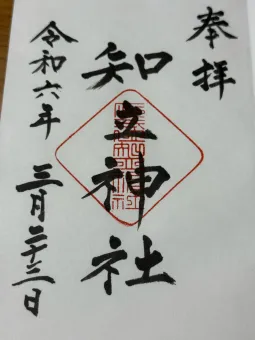 奉拝
知立神社
令和六年
三月二十三日